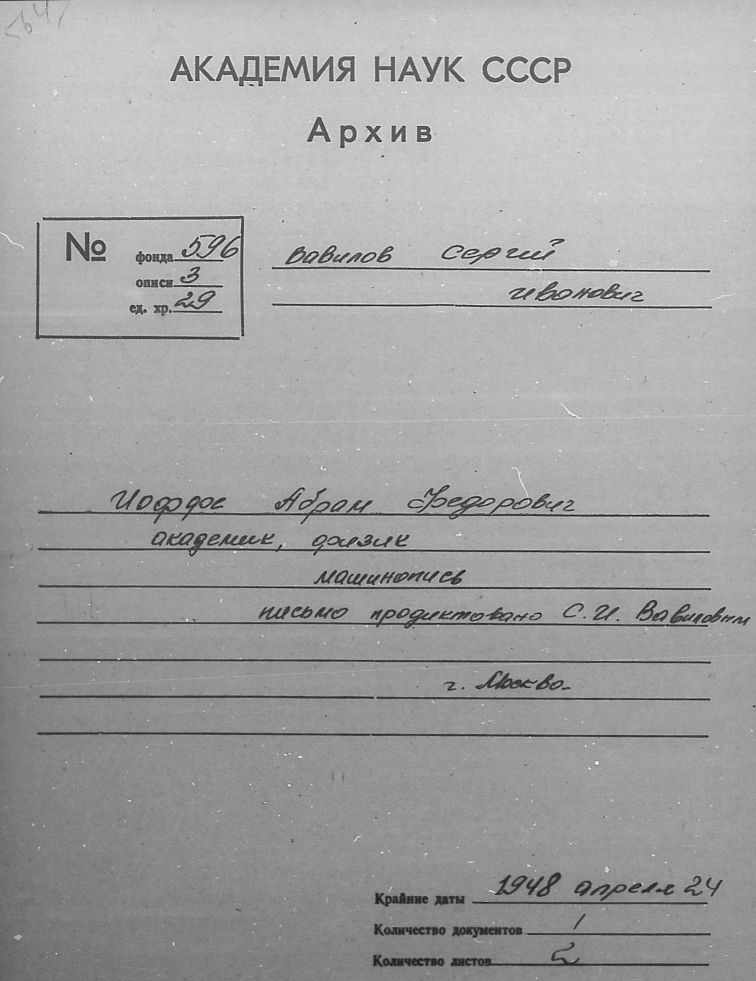 АКАДЕМИЯ НАУК СССР
Архив
№ фонда 596
описи 3
ед. хр. 29
Вавилов Сергий
Иванович
Иоффе Абрам Федорович
академик, физик
машинопись
письмо продиктовано С.И. Вавиловым
г. Москва.
Крайние даты 1948 апреля 24
Количество документов 1
Количество листов 2